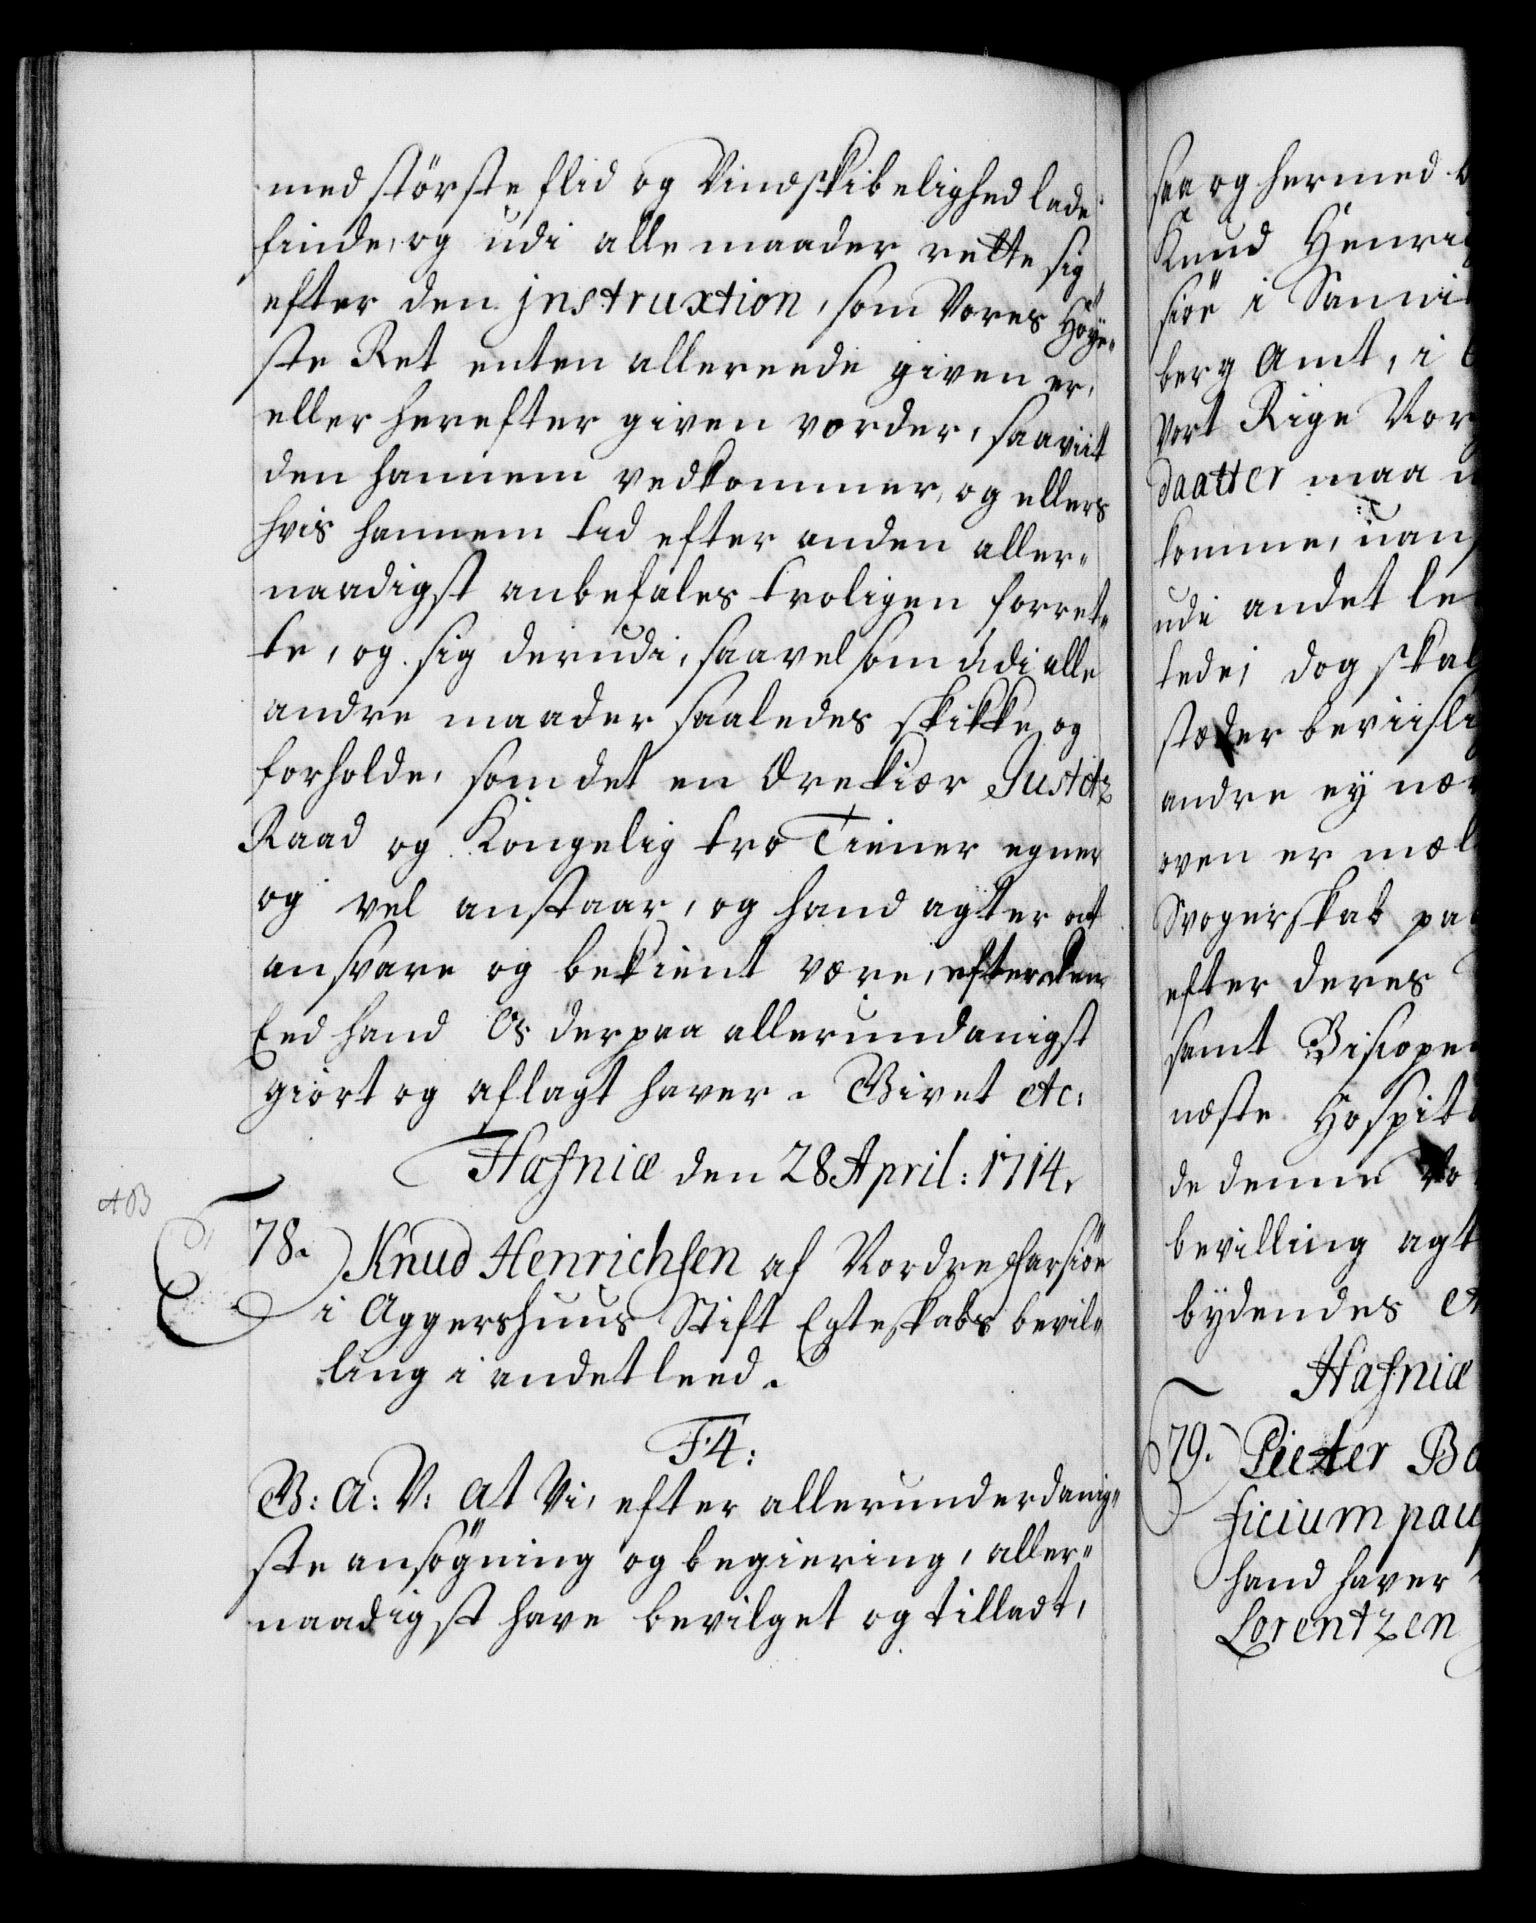 med største flid og Vindskibelighed lade
finde, og udi alle maader rette sig
efter den jnstruxtion, som Vores Høye-
ste Ret enten allereede given er,
eller herefter given vorder, saaviit
den hannem vedkommer, og ellers
hvis hannem tid efter anden aller-
naadigst anbefales troligen forret-
te, og sig derudi, saavelsom udi alle
andre maader saaledes skikke og
forholde, som det en ærekiær Justitz
Raad og Kongelig tro Tiener egner
og vel anstaar, og hand agter at
ansvare og bekient være, efter den
Eed hand Os derpaa allerundanigst
giort og aflagt haver. Givet etc:
Hafniæ den 28 April: 1714.
78.
Knud Henrichsen af Nordre Farsiøe
i Aggershuus Stift Egteskabs bevil-
ling i andet leed.
F4:
G: A: V: At Vi, efter allerunderdanig-
ste ansøgning og begiering, aller-
naadigst have bevilget og tilladt,
AB
saa og hermed
Knud Henri
siøe i Sanni
berg Amt, i
vort Rige Nor
daatter maa
komme, uan
udi andet le
tede; dog skal
stæder beviisli
andre ey nær
oven er mæl
Svogerskab paa
efter deres
samt Biscope
næste Hospit
de denne Vo
bevilling agt
bydendes
Hafniæ
79. Pieter Bo
ficium pau
hand haver
Lorentzen